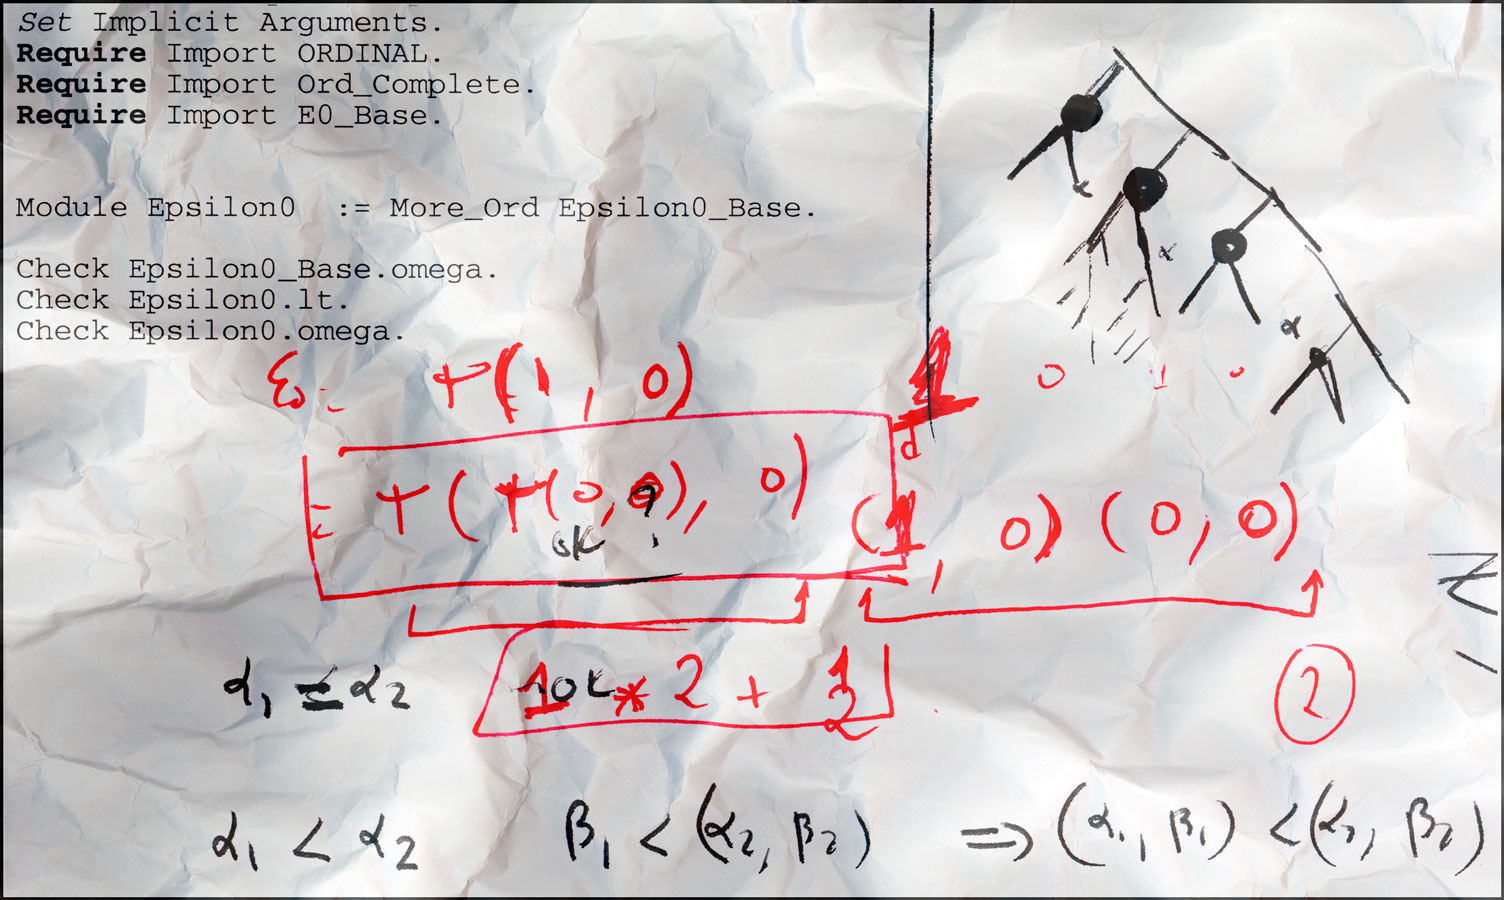 Set Implicit Arguments.
Require Import ORDINAL.
Require Import Ord_Complete.
Require Import E0_Base.
Module Epsilon0 := More_Ord Epsilon0_Base.
Check Epsilon0_Base.omega.
Check Epsilon0.lt.
Check Epsilon0.omega.
α
α
ε₀ = + (1, 0)
1 0 1 0
= + ( + (0, 0), 0)
d
(1, 0) (0, 0)
ok ?
α₁ = α₂
* 2 +
2
α₁ < α₂ β₁ < (α₂, β₂) ⇒ (α₁, β₁) < (α₂, β₂)